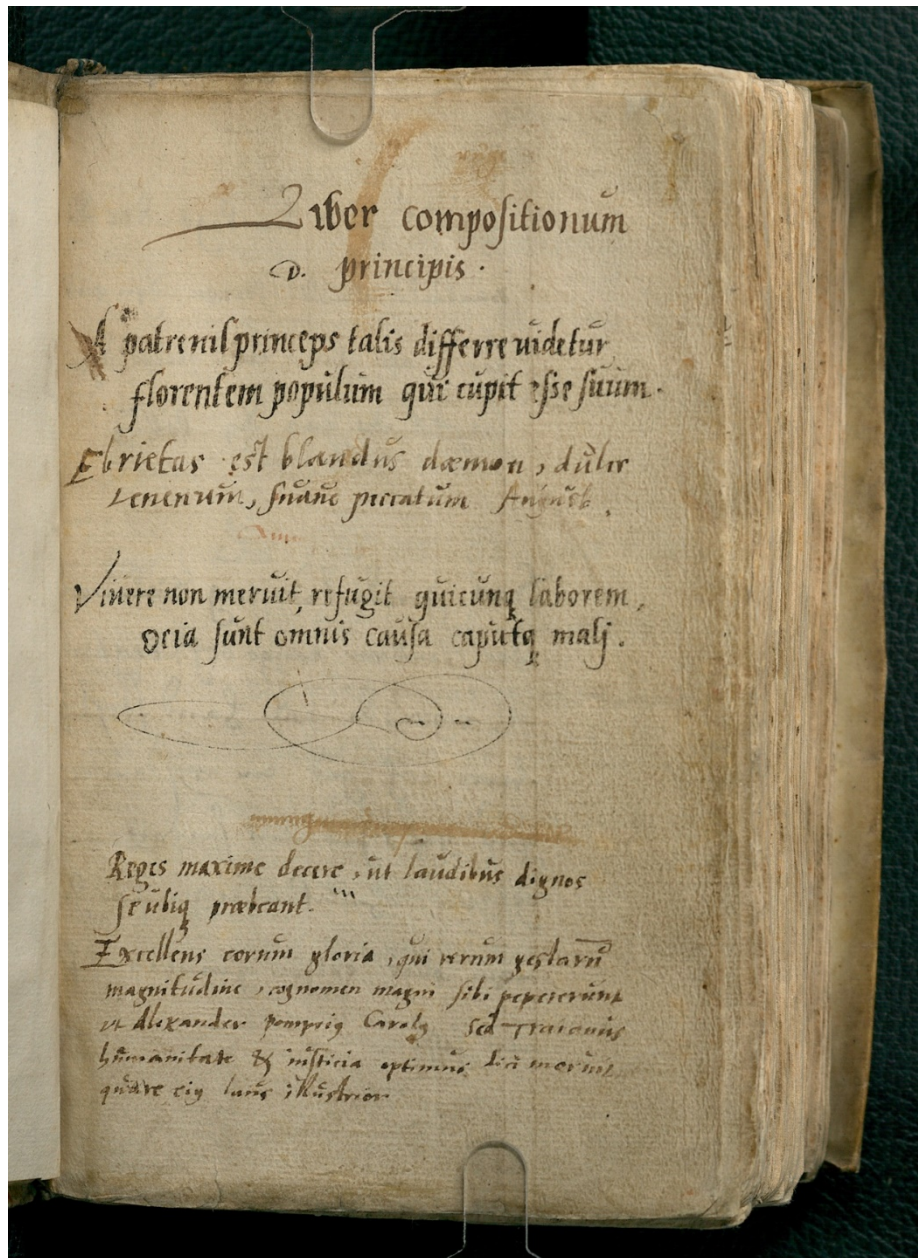 Liber compositionum
D. principis.
A patre nil princeps talis differre uidetur
florentem populum qui cupit esse suum.
Ebrietas est blandus dæmon, dulce
venenum, suaue peccatum August.
Viuere non meruit, refugit quicunq laborem,
Ocia sunt omnis causa caputq malj.
Reges maxime decere, ut laudibus dignos
se ubiq præbeant.
Excellens eorum gloria, qui rerum gestarū
magnitudine, cognomen magni sibi pepererunt
ut Alexander pompeiq Carolq sed Traianus
humanitate & iusticia optimus dici meruit
quare eiq laus illustrior